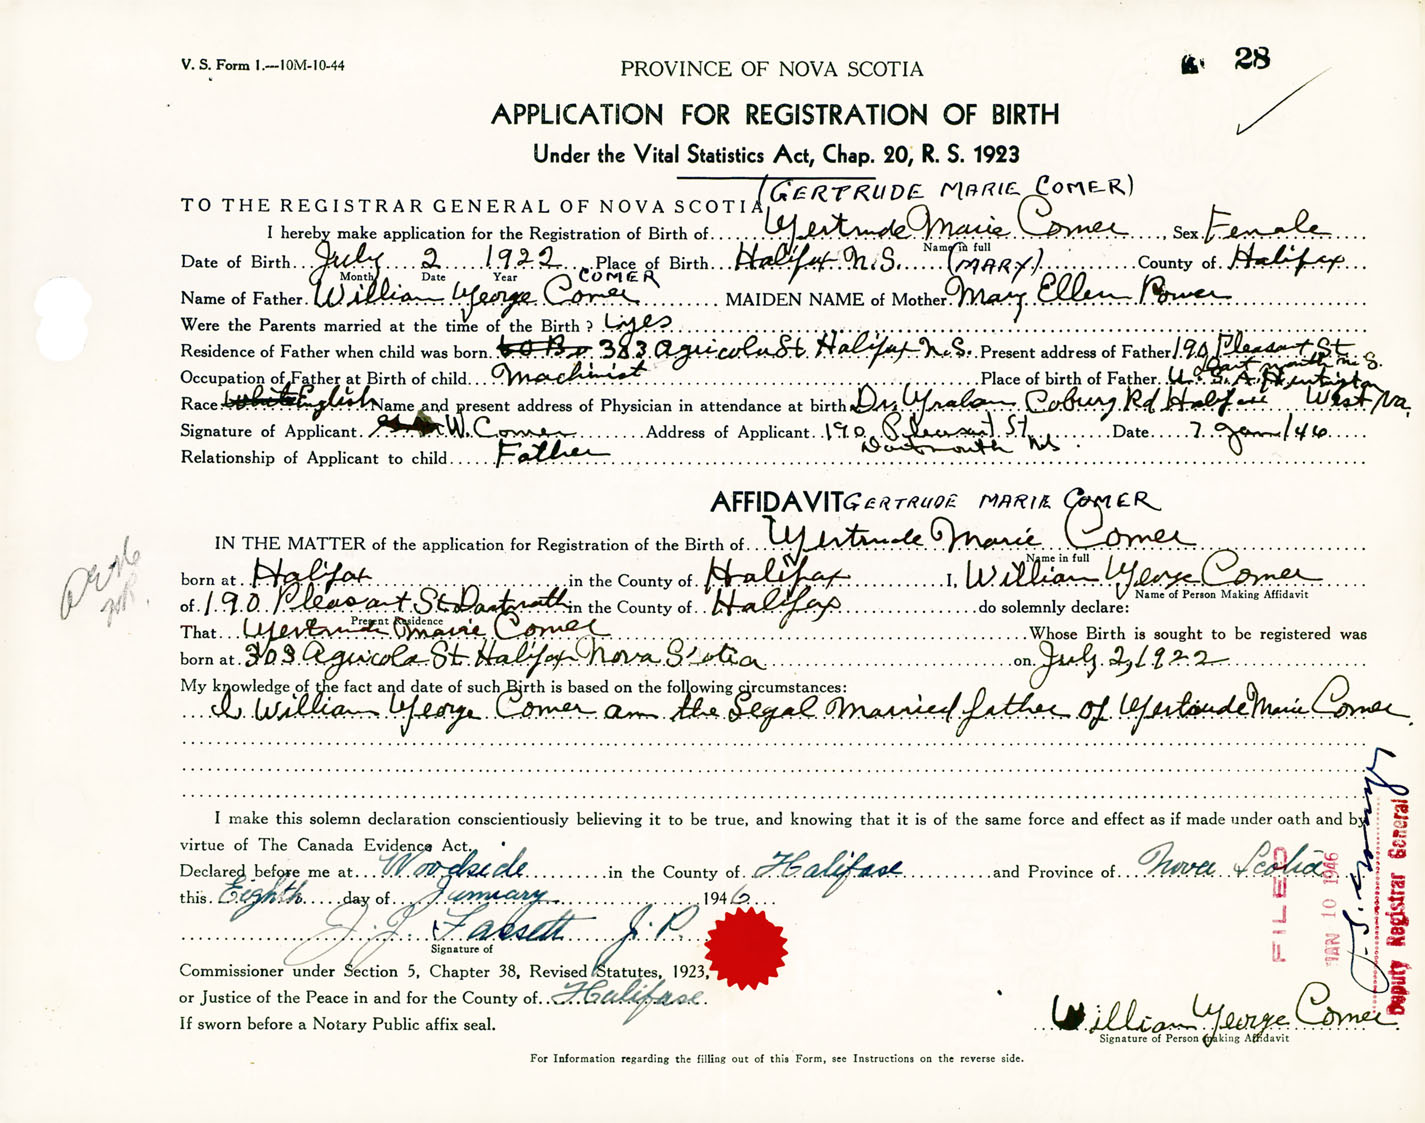 V. S. Form 1.—10M-10-44
28
PROVINCE OF NOVA SCOTIA
APPLICATION FOR REGISTRATION OF BIRTH
Under the Vital Statistics Act, Chap. 20, R. S. 1923
(GERTRUDE MARIE COMER)
TO THE REGISTRAR GENERAL OF NOVA SCOTIA,
I hereby make application for the Registration of Birth of Gertrude Marie Comer, Sex Female
Name in full
Date of Birth July 2 1922 Place of Birth Halifax N.S. (MARY) County of Halifax
Month Date Year COMER
Name of Father William George Comer MAIDEN NAME of Mother Mary Ellen Power
Were the Parents married at the time of the Birth? yes
Residence of Father when child was born 383 Agricola St. Halifax N.S. Present address of Father 190 Pleasant St
Dartmouth N.S.
Occupation of Father at Birth of child Machinist Place of birth of Father U.S.A. Huntington
West Va.
Race White English Name and present address of Physician in attendance at birth Dr. Coburg Rd Halifax
Signature of Applicant W. Comer Address of Applicant 190 Pleasant St. Date 7 Jan/46
Dartmouth NS.
Relationship of Applicant to child Father
AFFIDAVIT GERTRUDE MARIE COMER
IN THE MATTER of the application for Registration of the Birth of Gertrude Marie Comer
Name in full
born at Halifax in the County of Halifax I, William George Comer
Name of Person Making Affidavit
of 190 Pleasant St. Dartmouth in the County of Halifax do solemnly declare:
Present Residence
That Gertrude Marie Comer Whose Birth is sought to be registered was
born at 303 Agricola St Halifax Nova Scotia on July 2, 1922
My knowledge of the fact and date of such Birth is based on the following circumstances:
I William George Comer am the Legal Married father of Gertrude Marie Comer.
I make this solemn declaration conscientiously believing it to be true, and knowing that it is of the same force and effect as if made under oath and by
virtue of The Canada Evidence Act.
Declared before me at Woodside in the County of Halifax and Province of Nova Scotia
this Eighth day of January 1946
J. P.
Signature of
Commissioner under Section 5, Chapter 38, Revised Statutes, 1923,
or Justice of the Peace in and for the County of Halifax.
If sworn before a Notary Public affix seal.
William George Comer
Signature of Person making Affidavit
For Information regarding the filling out of this Form, see Instructions on the reverse side.
FILED
JAN 10 1946
Deputy Registrar General